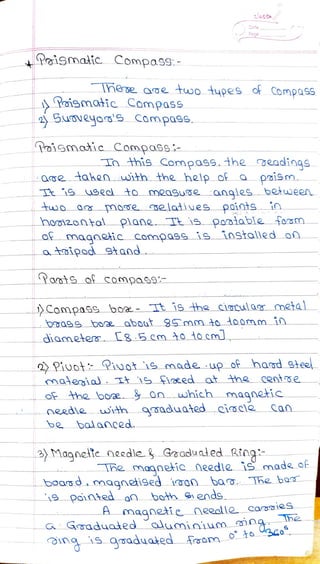 Date
Page
* Prismatic Compass:-
There are two types of Compass
1) Prismatic Compass
2) Surveyor's Compass.
Prismatic Compass:-
In this Compass. the readings
are taken with the help of a prism.
It is used to measure angles between
two or more relatives points in
horizontal plane. It is portable form
of magnetic compass is installed on
a tripod stand.
Parts of compass:-
1) Compass box - It is the circular metal
brass box about 85mm to 100mm in
diameter. [8.5 cm to 10 cm]
2) Pivot:- Pivot is made up of hard steel
material. It is fixed at the centre
of the box. & on which magnetic
needle with graduated circle can
be balanced.
3) Magnetic needle & Graduated Ring:-
The magnetic needle is made of
board, magnetised iron bar. The bar
is pointed on both ends.
A magnetic needle carries
a Graduated aluminium ring. The
ring is graduated from 0° to 360°.